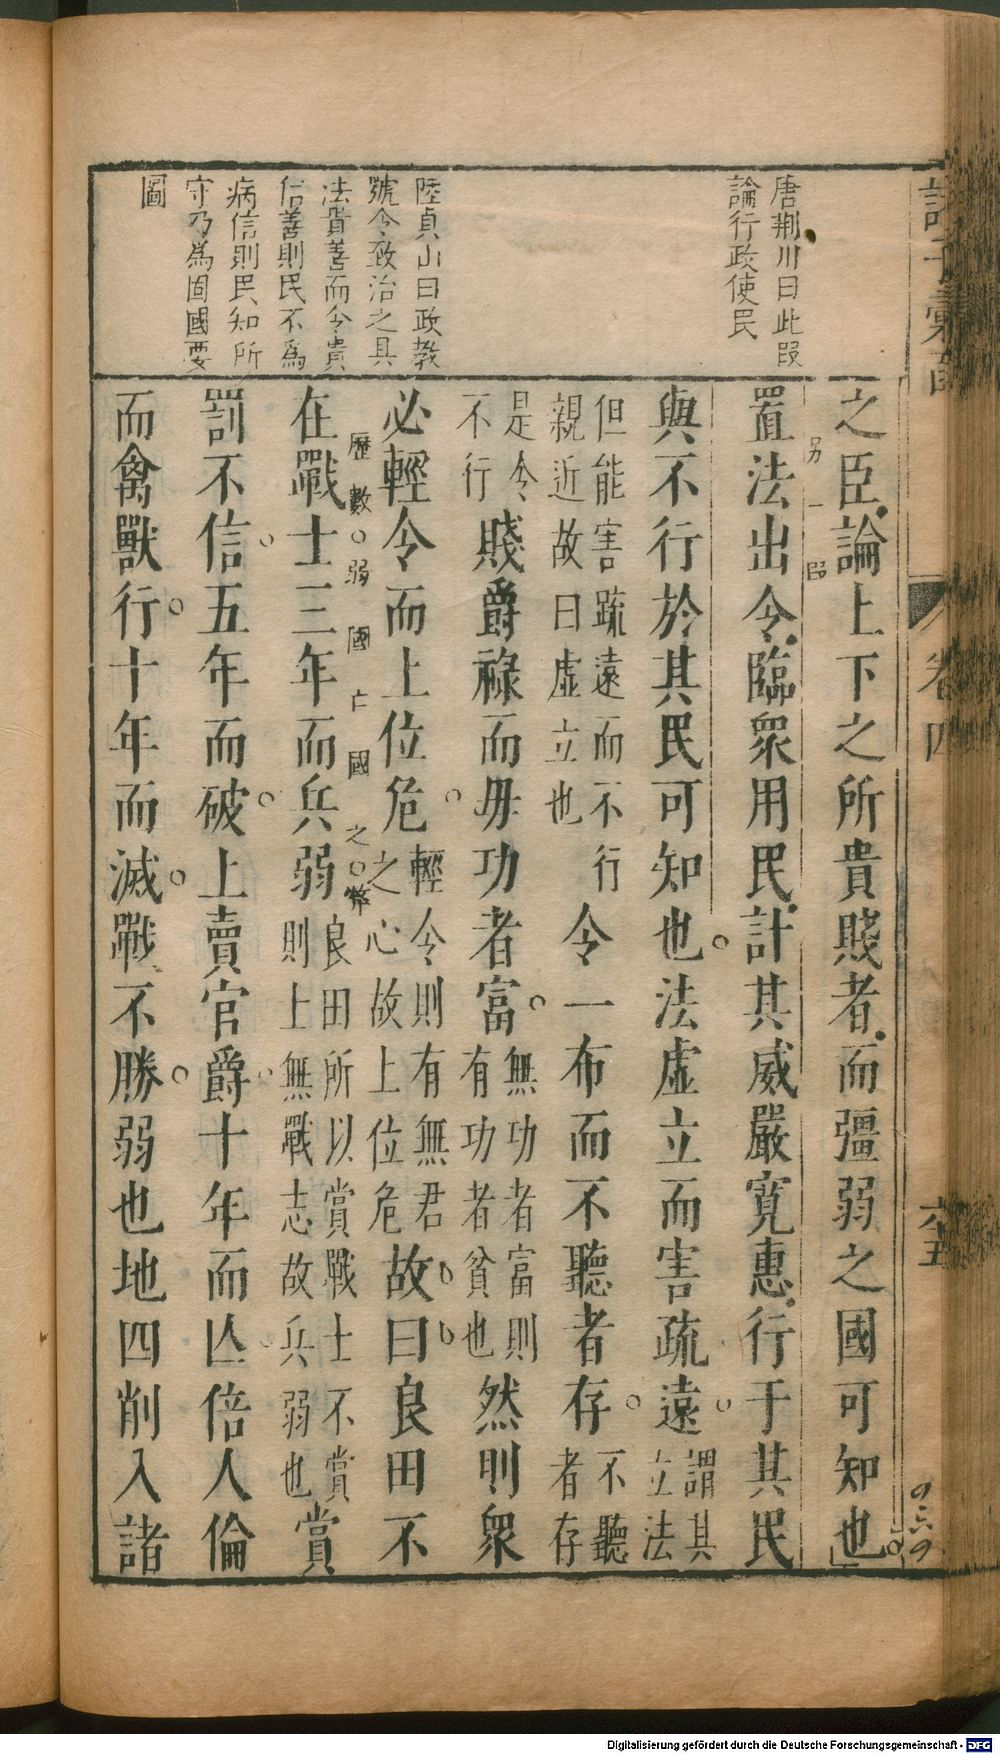 唐荆川曰此叚
論行政使民
陸貞山曰政教
號令致治之具
法貴善而令貴
信善則民不爲
病信則民知所
守乃爲固國要
圖
之臣論上下之所貴賤者而彊弱之國可知也
另一叚
置法出令臨衆用民計其威嚴寬惠行于其民
與不行於其民可知也法虛立而害疏遠謂其
立法
但能害踈遠而不行
親近故曰虛立也令一布而不聽者存不聽
者存
是令
不行賤爵祿而毋功者富無功者富則
有功者貧也然則衆
必輕令而上位危輕令則有無君
之心故上位危故曰良田不
歷數弱國亡國之弊
在戰士三年而兵弱良田所以賞戰士不賞
則上無戰志故兵弱也賞
罰不信五年而破上賣官爵十年而亾倍人倫
而禽獸行十年而滅戰不勝弱也地四削入諸
卷四
Digitalisierung gefördert durch die Deutsche Forschungsgemeinschaft - DFG